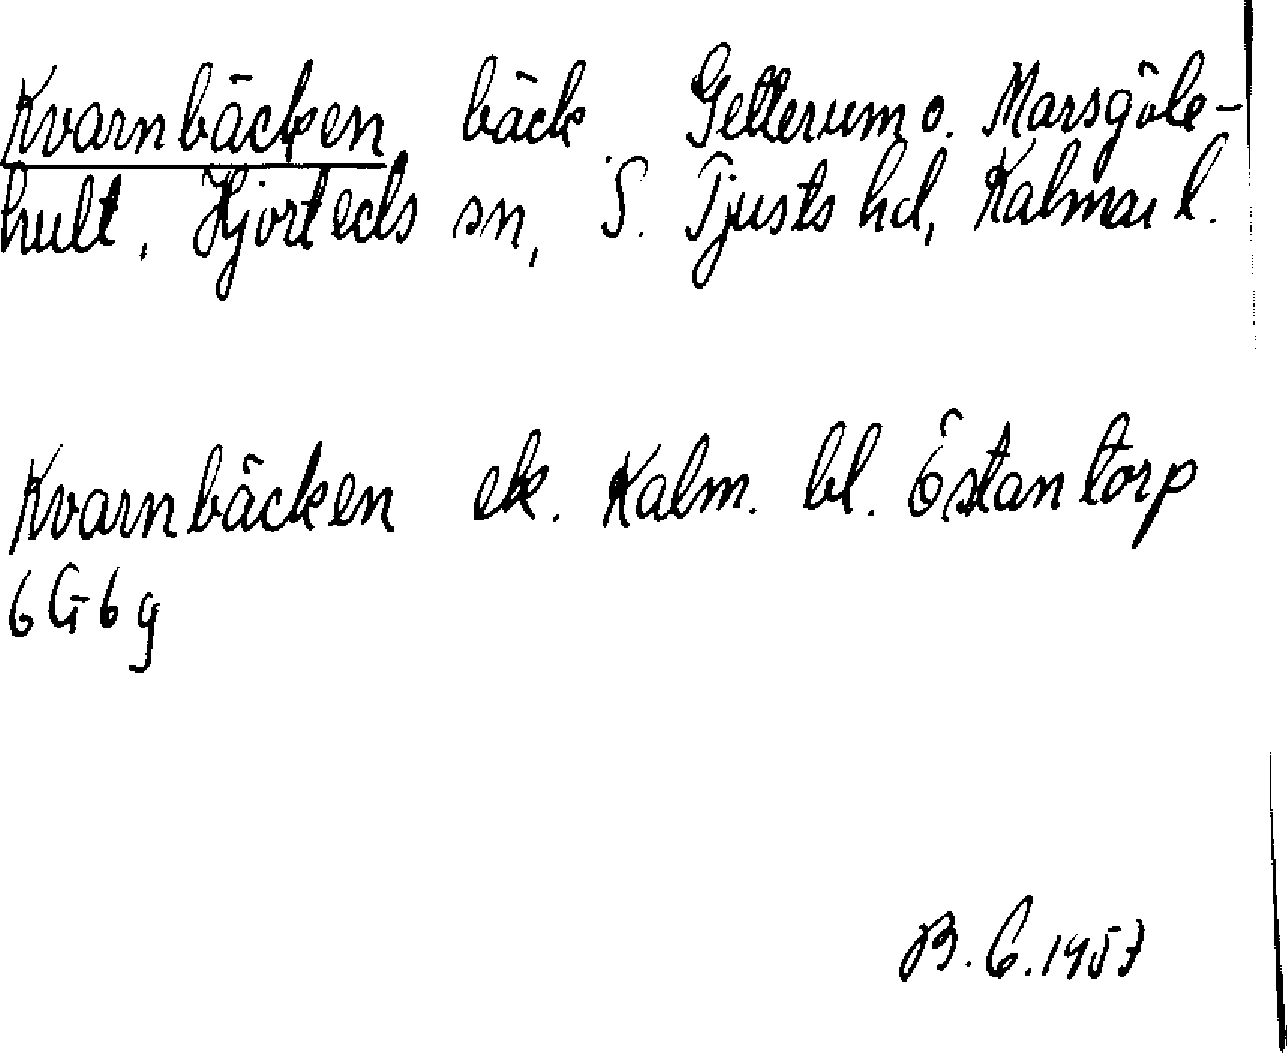 Kvarnbäcken, bäck, Gellerum o. Marsgöle-
hult, Hjorteds sn, S. Tjusts hd, Kalmar l.
Kvarnbäcken ek. Kalm. bl. Östantorp
6G6g
B. C. 1957